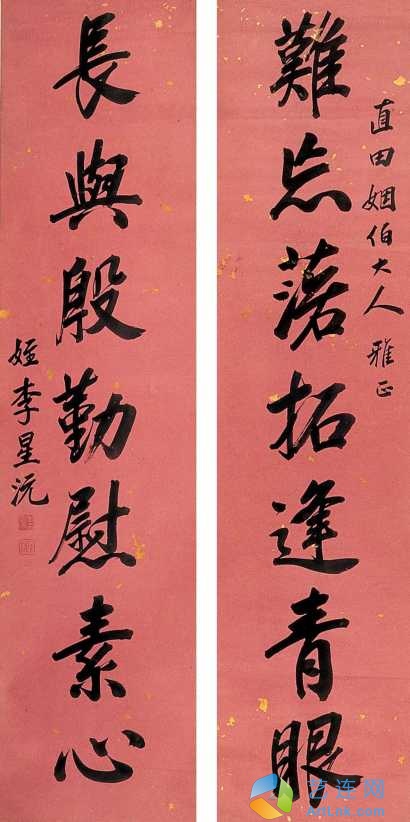 直田姻伯大人 雅正
難忘落拓逢青眼
長與殷勤慰素心
姪李星沅
艺连网